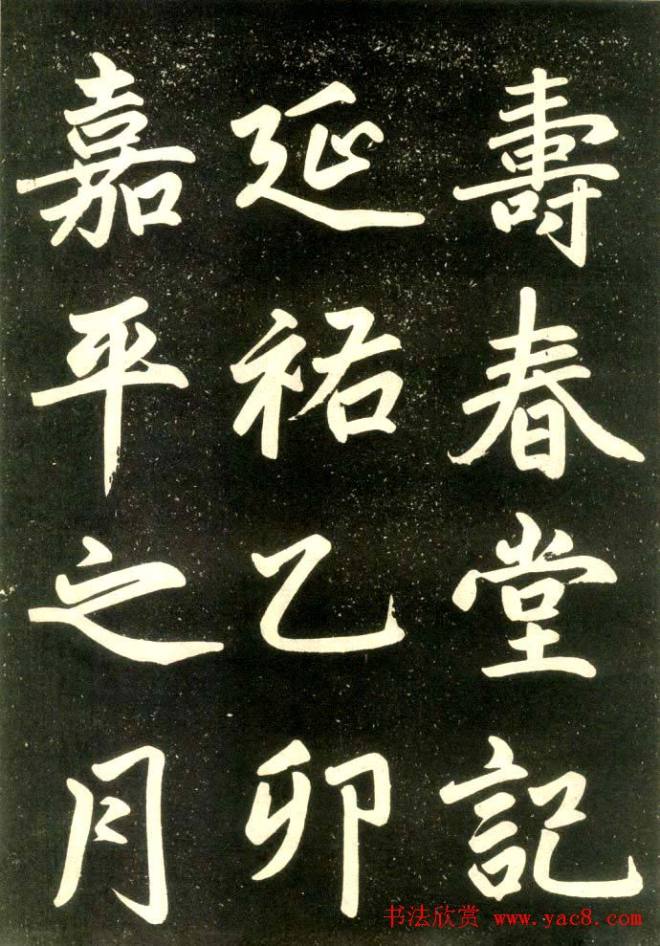 壽春堂記
延祐乙卯
嘉平之月
书法欣赏 www.yac8.com